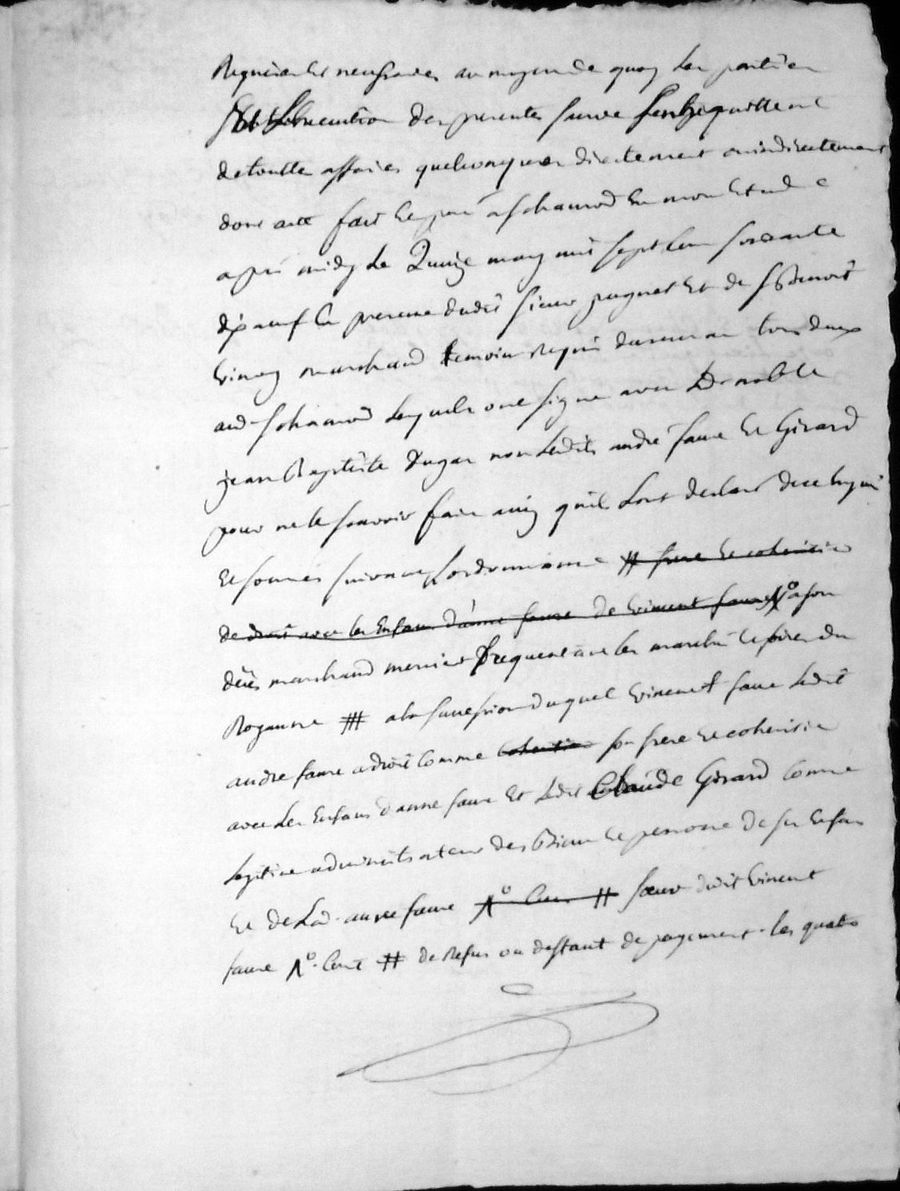 Requerantes neussaires au moyen de quoy les parties
Et L'execution des presentes
de toutte affaires quelconques directement ou indirectement
dont acte fait Et a St chamond En mon Etude
apres midy Le Quinze may mil sept Cent soixante
dix neuf En presence dudit sieur pugnet Et de sr Benoit
marchand temoins Requis demeurans tous deux
aud. St chamond Lesquels ont signé avec De noble
jean Baptiste Dugas non Lesdits andré faure Et Girard
pour ne le scavoir faire ainsy quils L'ont declaré de ce Enquis
Et sommés suivant L'ordonnance # frere Et coheritier
de droit avec les Enfans d'anne faure de Vincent faure Nº a son
deces marchand mercier frequentant les marchés Et foires du
Royaume # a la succession duquel Vincent faure Ledit
andre faure a droit Comme coheritier son frere Et coheritier
avec Les Enfans d'anne faure Et Ledit Claude Girard Comme
Legitime administrateur des Biens Et personne de ses Enfans
Et de Lad. anne faure Nº Cent # sœur dudit Vincent
faure Nº. Cent # de Refus ou deffaut de payement. les quatre